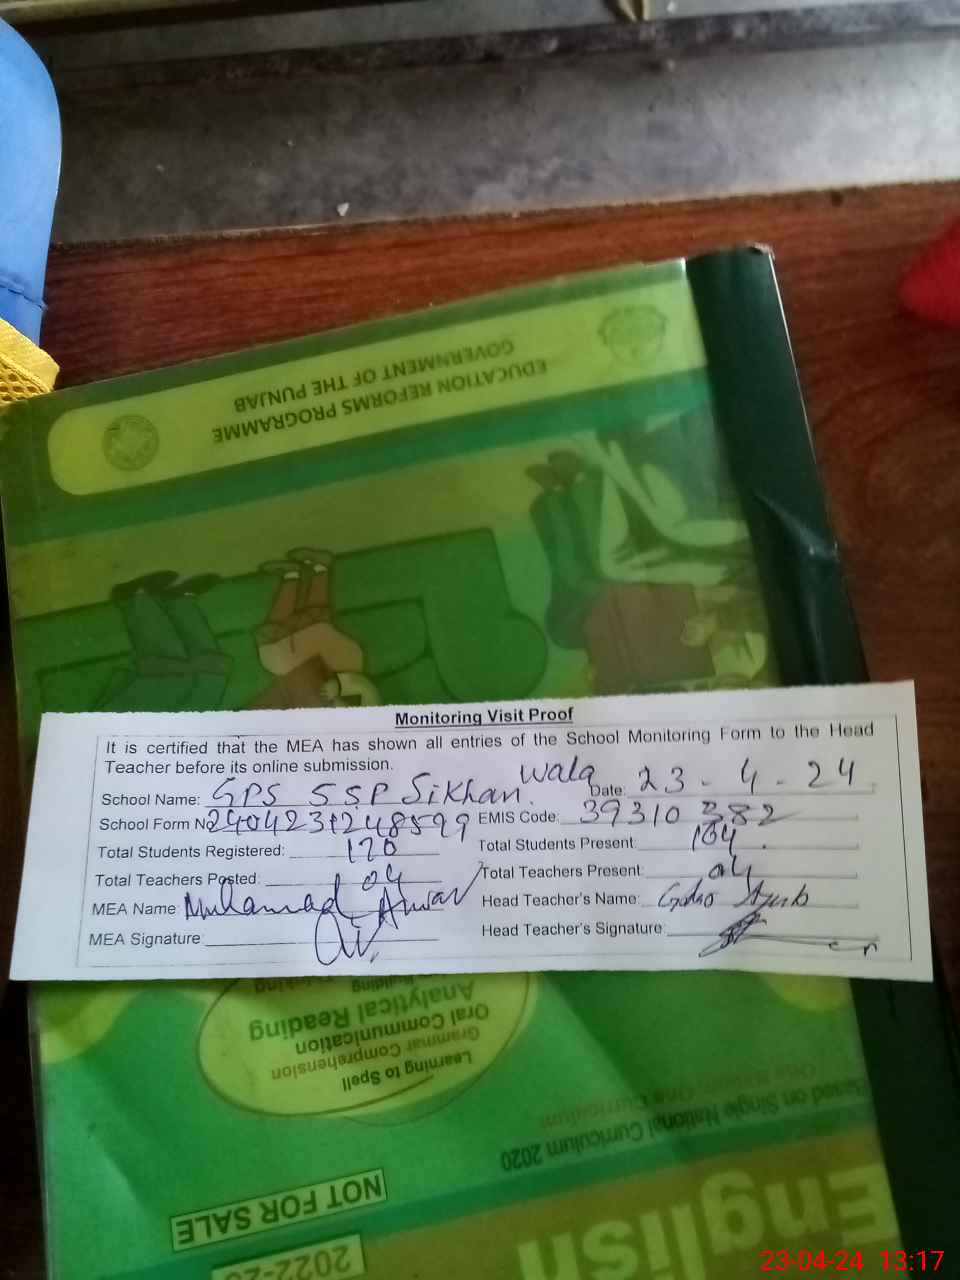 EDUCATION REFORMS PROGRAMME
GOVERNMENT OF THE PUNJAB
Monitoring Visit Proof
It is certified that the MEA has shown all entries of the School Monitoring Form to the Head
Teacher before its online submission.
School Name: GPS SSP Sikhan wala Date: 23-4-24
School Form No 2404231248599 EMIS Code: 39310382
Total Students Registered: 170 Total Students Present: 104
Total Teachers Posted: 04 Total Teachers Present: 04
MEA Name: Muhammad Anwar Head Teacher's Name: Ayub
MEA Signature: Head Teacher's Signature:
Building Thinking
Analytical Reading
Oral Communication
Grammar Comprehension
Learning to Spell
Based on Single National Curriculum 2020
One Curriculum
NOT FOR SALE
English
2022-23
23-04-24 13:17